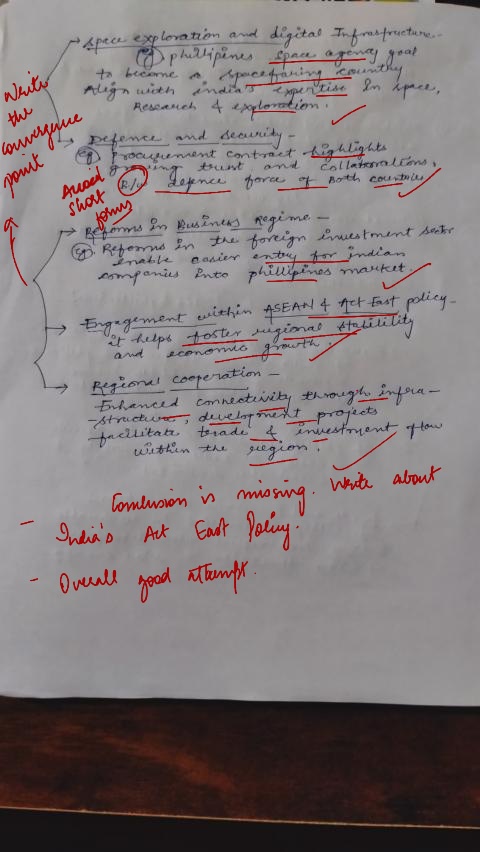 Space exploration and digital Infrastructure-
eg phillipines space agency goal
to become a spacefaring country
Align with india's expertise in space,
Research & exploration.
Write
the
convergence
point
Defence and security-
eg Procurement contract highlights
growing trust and collaborations,
b/w defence force of Both countries
Avoid
Short
forms
Reforms in Business Regime-
eg. Reforms in the foreign investment sector
enable easier entry for indian
companies into phillipines market.
Engagement within ASEAN & Act East policy-
it helps foster regional stability
and economic growth.
Regional cooperation-
Enhanced connectivity through infra-
structure, development projects
facilitate trade & investment flow
within the region.
- Conclusion is missing. Write about
India's Act East Policy.
- Overall good attempt.